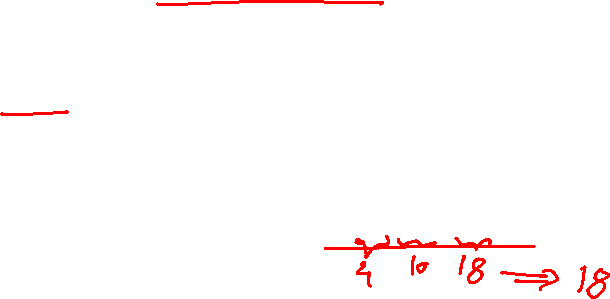 4 10 18 ⇒ 18